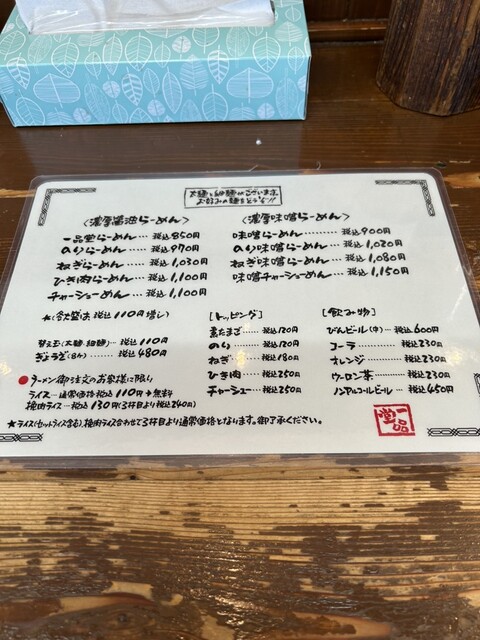 太麺と細麺がございます。
お好みの麺をどうぞ!!
〈濃厚醤油らーめん〉
一品堂らーめん…税込850円
のりらーめん……税込970円
ねぎらーめん…税込1,030円
ひき肉らーめん…税込1,100円
チャーシューめん…税込1,100円
〈濃厚味噌らーめん〉
味噌らーめん………税込900円
のり味噌らーめん…税込1,020円
ねぎ味噌らーめん…税込1,080円
味噌チャーシューめん…税込1,150円
*(大盛は 税込110円増し)
替え玉(太麺・細麺)…税込110円
ぎょうざ(5ケ)……税込480円
[トッピング]
黒たまご……税込120円
のり…………税込120円
ねぎ…………税込180円
ひき肉………税込250円
チャーシュー…税込250円
[飲み物]
びんビール(中)…税込600円
コーラ…………税込230円
オレンジ………税込230円
ウーロン茶……税込230円
ノンアルコールビール…税込450円
●ラーメン御注文のお客様に限り
ライス…通常価格 税込110円→無料
挽肉ライス…税込130円(3杯目より税込240円)
★ライス(セットライス含む)、挽肉ライス合わせて3杯目より通常価格となります。御了承ください。
一品堂